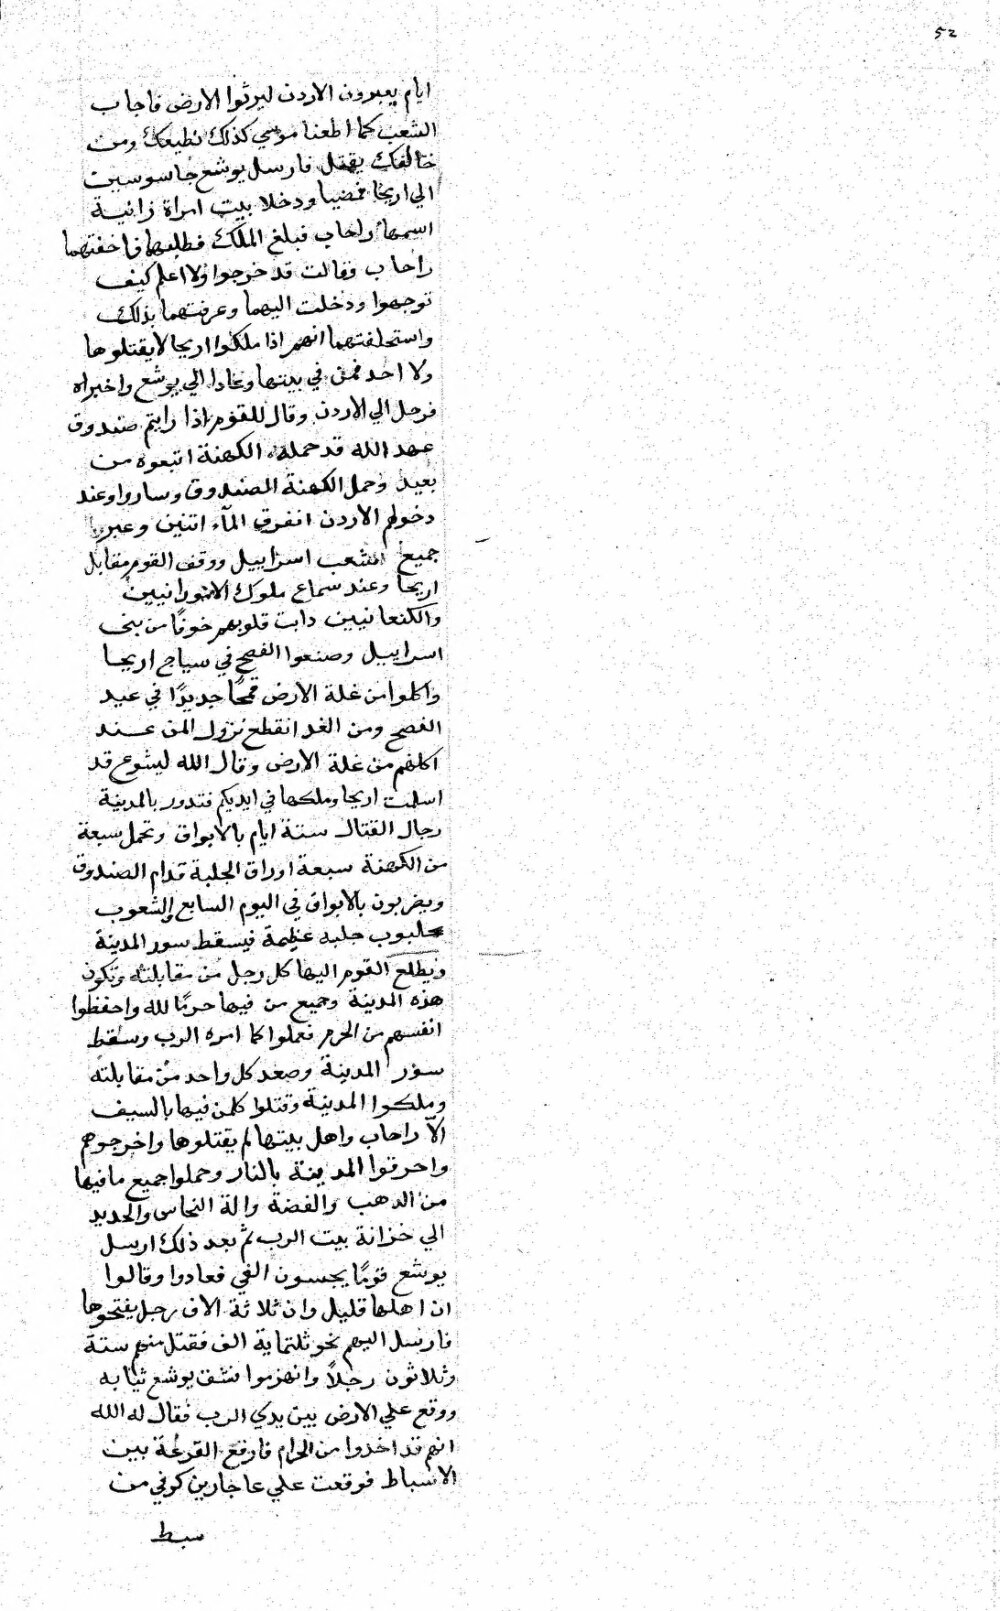 52
ايام يعبرون الاردن ليرثوا الارض فاجاب
الشعب كما اطعنا موسي كذلك نطيعك ومن
خالفك يقتل فارسل يوشع جاسوسين
الي اريحا فمضيا ودخلا بيت امراة زانية
اسمها راحاب فبلغ الملك فطلبهما فاخفتهما
راحاب وقالت قد خرجوا ولا اعلم كيف
توجهوا ودخلت اليهما وعرفتهما بذلك
واستحلفتهما انهم اذا ملكوا اريحا لا يقتلوها
ولا احد فمن في بيتها وعادا الي يوشع واخبراه
فرحل الي الاردن وقال للقوم اذا رايتم صندوق
عهد الله قد حمله الكهنة اتبعوه من
بعيد وحمل الكهنة الصندوق وساروا وعند
دخولهم الاردن انفرق المآء اتنين وعبروا
جميع الشعب اسراييل ووقف القوم مقابل
اريحا وعند سماع ملوك الامورانيين
والكنعانيين دابت قلوبهم خوفًا من بني
اسراييل وصنعوا الفصح في سياج اريحا
واكلوا من غلة الارض قمحًا جديدًا في عيد
الفصح ومن الغد انقطع نزول المن عند
اكلهم من غلة الارض وقال الله ليشوع قد
اسلمت اريحا وملكها في ايديكم فتدور بالمدينة
رجال القتال ستة ايام بالابواق وتحمل سبعة
من الكهنة سبعة اوراق الجلبة قدام الصندوق
ويضربون بالابواق في اليوم السابع والشعوب
يجلبوب جلبه عظيمة فيسقط سور المدينة
ويطلع القوم اليها كل رجل من مقابلته وتكون
هذه المدينة وجميع من فيها حرمًا لله واحفظوا
انفسهم من الحرم ففعلوا كما امره الرب وسقط
سور المدينة وصعد كل واحد من مقابلته
وملكوا المدينة وقتلوا كلمن فيها بالسيف
الآ راحاب واهل بيتها لم يقتلوها واخرجوهم
واحرقوا المدينة بالنار وحملوا جميع ما فيها
من الدهب والفضة والة النحاس والحديد
الي خزانة بيت الرب ثم بعد ذلك ارسل
يوشع قومًا يجسون الغي فعادوا وقالوا
ان اهلها قليل وان ثلاثة الاف رجل يفتحوها
فارسل اليهم نحو ثلتماية الف فقتل منهم ستة
وثلاثون رجلاً وانهزموا فشق يوشع ثيابه
ووقع علي الارض بين يدي الرب فقال له الله
انهم قد اخدوا من الحرام فارقع القرعة بين
الاسباط فوقعت علي عاجار بن كوفي من
سبط